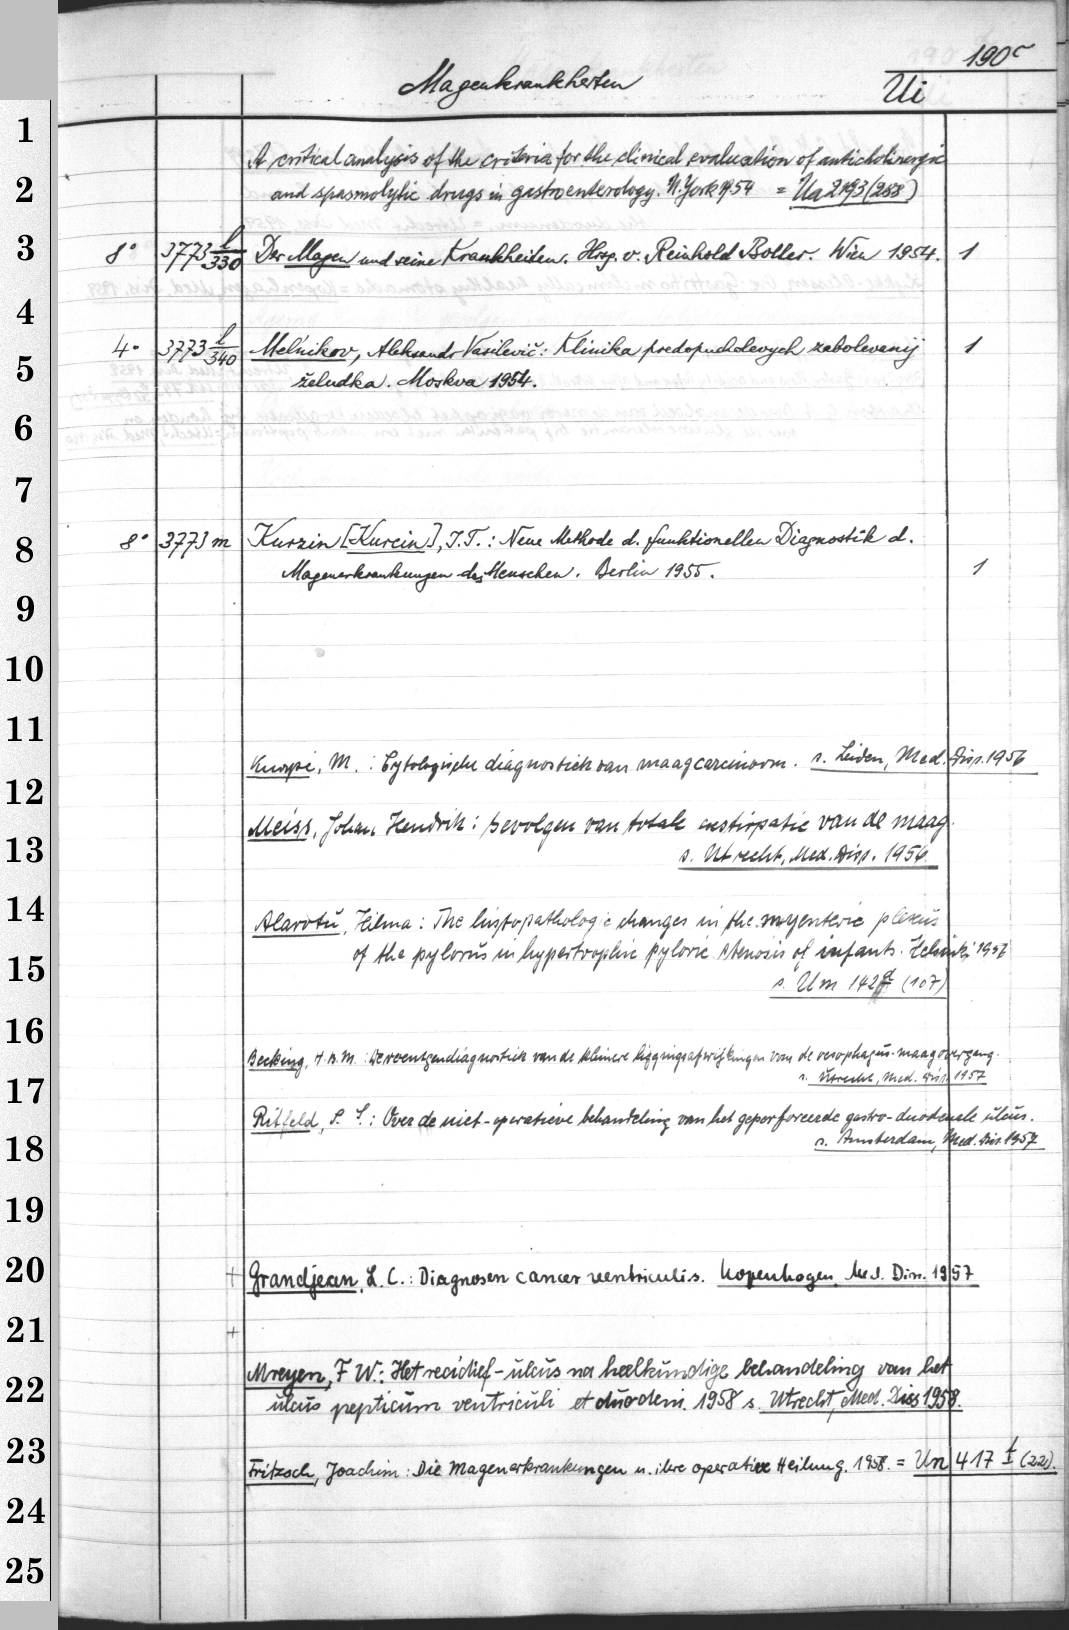 190c
Magenkrankheiten Ui
1
A critical analysis of the criteria for the clinical evaluation of anticholinergic
2 and spasmolytic drugs in gastroenterology. N. York 1954 = Ua 2193 (258)
3 8° 3773 l/330 Der Magen und seine Krankheiten. Hrsg. v. Reinhold Boller. Wien 1954. 1
4
4° 3773 l/340 Melnikov, Aleksandr Vasilevič: Klinika predopucholevych zabolevanij 1
5 želudka. Moskva 1954.
6
7
8 8° 3773 m Kurzin [Kurcin], I.T.: Neue Methode d. funktionellen Diagnostik d.
Magenerkrankungen des Menschen. Berlin 1955. 1
9
10
11
M.: Cytologische diagnostiek van maagcarcinoom. s. Leiden, Med. Diss. 1956
12
Meiss, Johan Hendrik: gevolgen van totale van de maag.
13 s. Utrecht, Med. Diss. 1956
14
Alarotu, Hilma: The histopathologic changes in the myenteric plexus
15 of the pylorus in hypertrophic pyloric stenosis of infants. Helsinki 1956
s. Um 142 (107)
16
Becking, : De roentgendiagnostiek van de kleinere liggingsafwijkingen van de oesophagus-maagovergang.
17 s. Utrecht, Med. Diss. 1957
Ritfeld, : Over de niet-operatieve behandeling van het geperforeerde gastro-duodenale ulcus.
18 s. Amsterdam, Med. Diss. 1957
19
20 + Grandjean, L. C.: Diagnosen cancer ventriculi s. Kopenhagen, Med. Diss. 1957
21 +
Mreyen, F W.: Het recidief-ulcus na heelkundige behandeling van het
22 ulcus pepticum ventriculi et duodeni. 1958 s. Utrecht, Med. Diss 1958.
23
Fritzsch, Joachim: Die Magenerkrankungen u. ihre operative Heilung. 1958. = Un 417 (22).
24
25